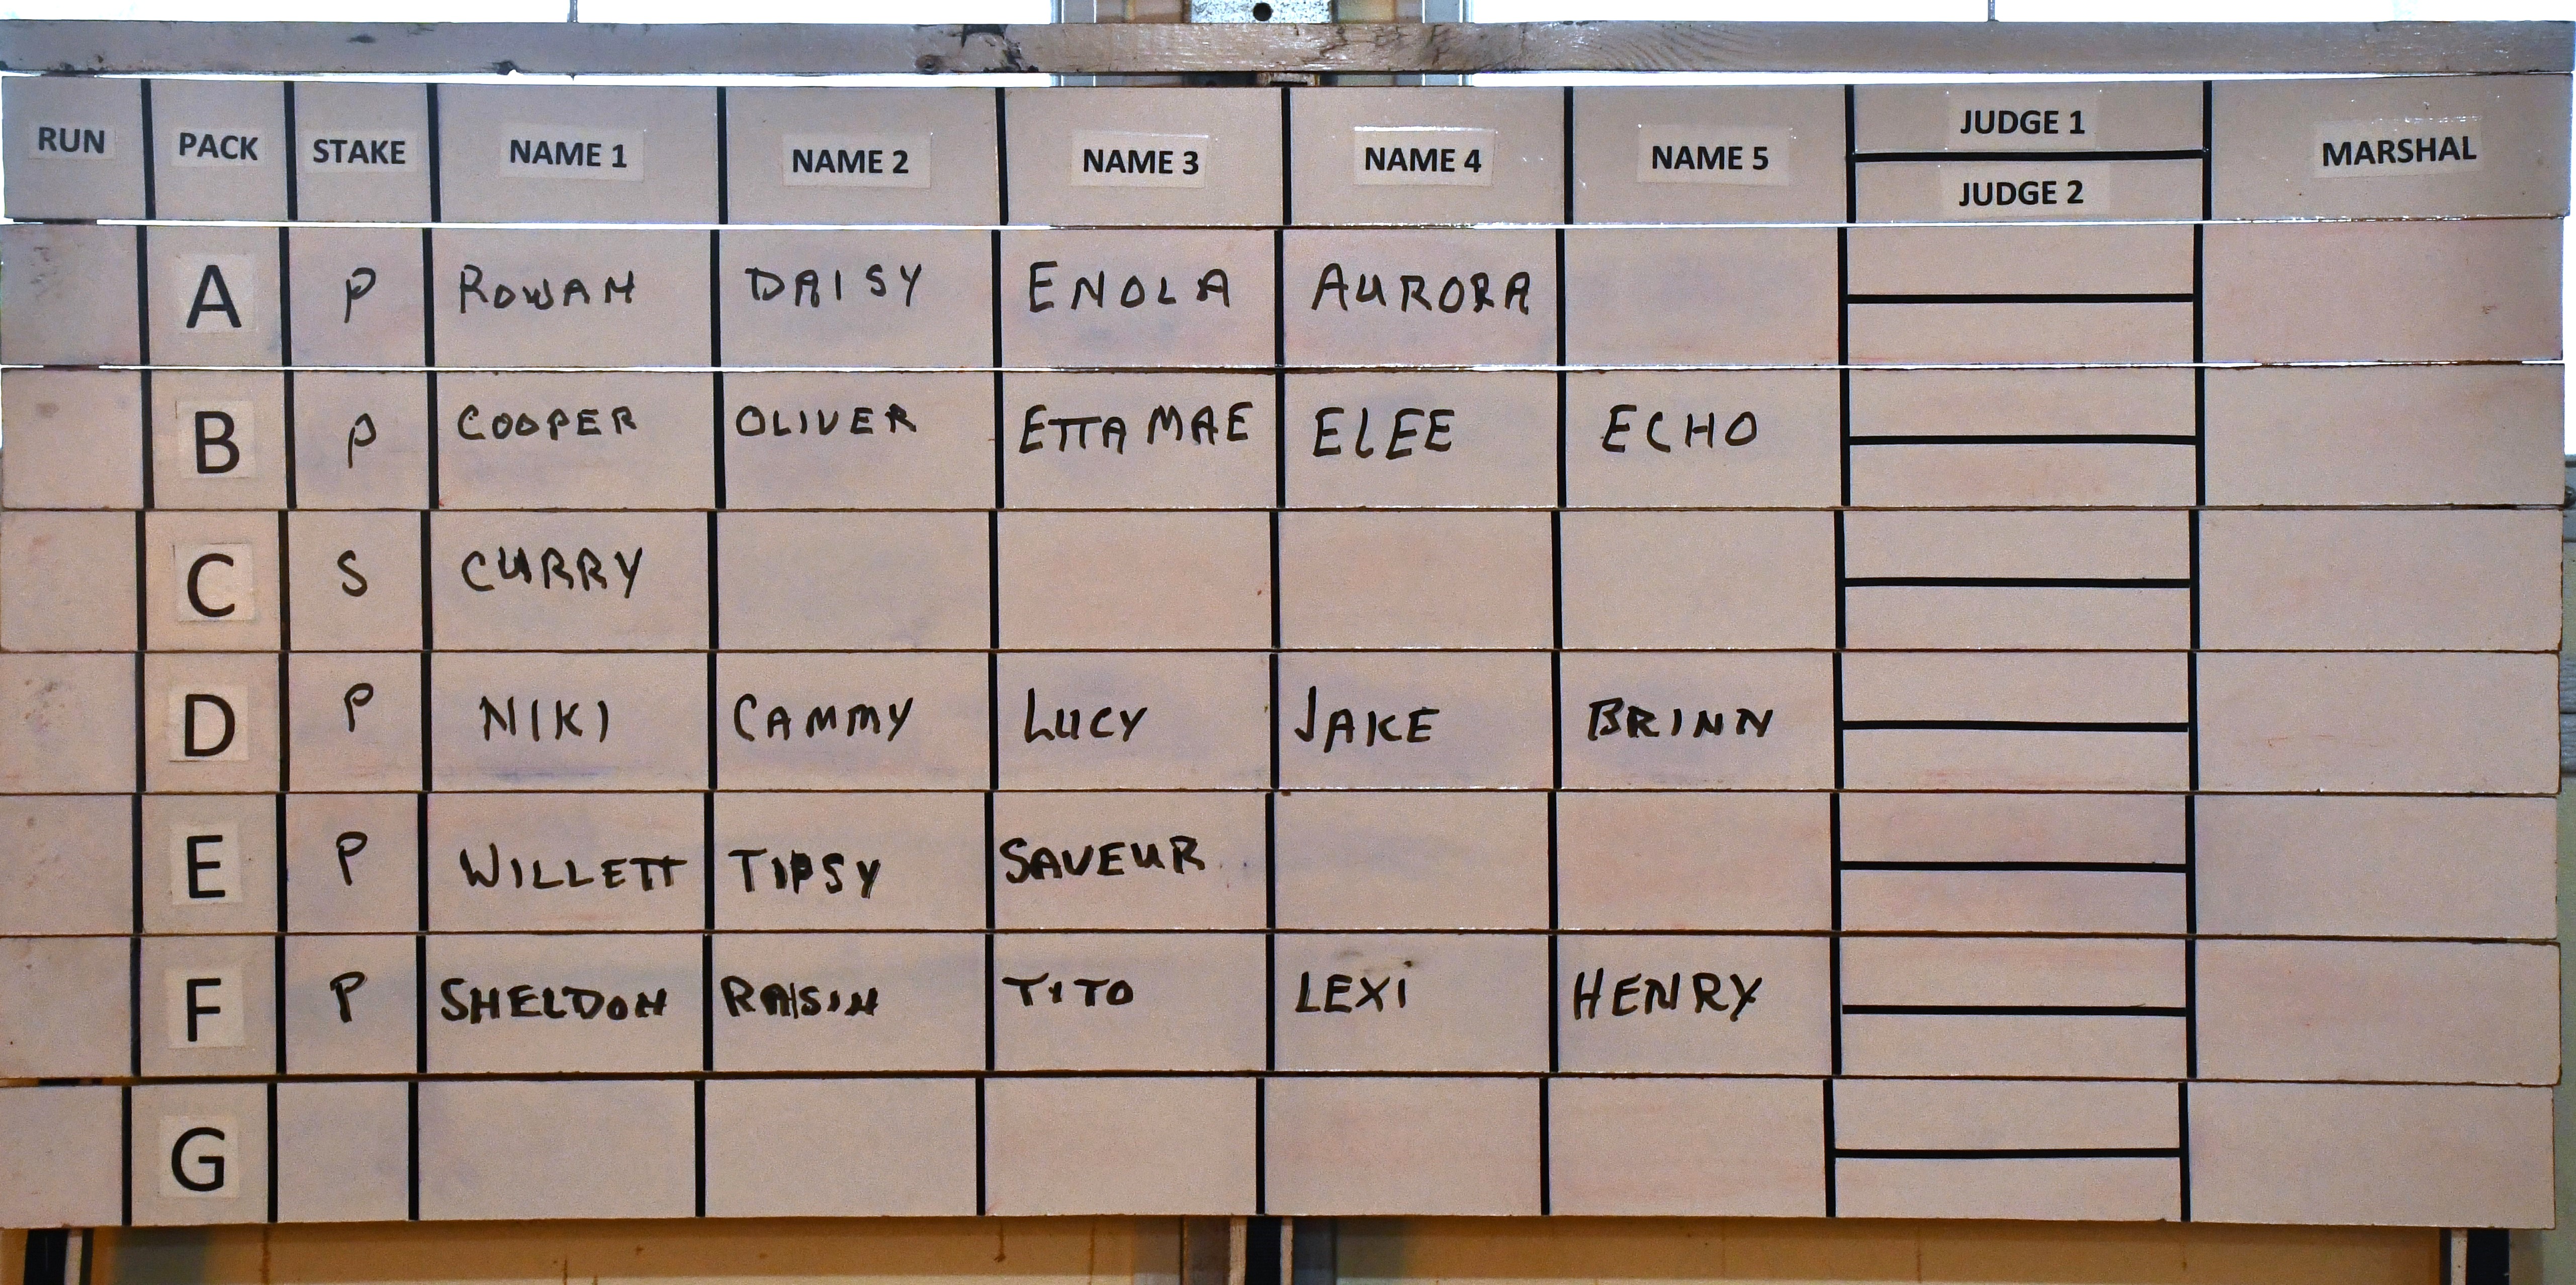 RUN PACK STAKE NAME 1 NAME 2 NAME 3 NAME 4 NAME 5 JUDGE 1 MARSHAL
JUDGE 2
A P ROWAN DAISY ENOLA AURORA
B P COOPER OLIVER ETTA MAE ELEE ECHO
C S CURRY
D P NIKI CAMMY LUCY JAKE BRINN
E P WILLETT TIPSY SAVEUR
F P SHELDON RAISIN TITO LEXI HENRY
G